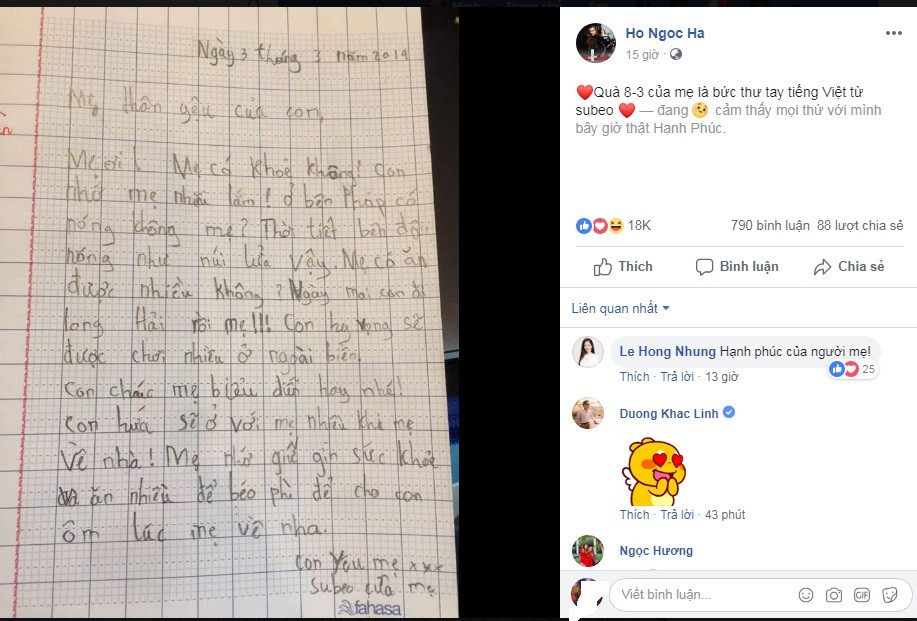 Ngày 3 tháng 3 năm 2019
Mẹ thân yêu của con,
Mẹ ơi! Mẹ có khoẻ không! Con
nhớ mẹ nhiều lắm! ở bên Pháp có
nóng không mẹ? Thời tiết bên đây
nóng như núi lửa vậy. Mẹ có ăn
được nhiều không? Ngày mai con đi
long Hải rồi mẹ!!! Con hy vọng sẽ
được chơi nhiều ở ngoài biển.
Con chúc mẹ biểu diễn hay nhé!
Con hứa sẽ ở với mẹ nhiều khi mẹ
Về nhà! Mẹ nhớ giữ gìn sức khoẻ
và ăn nhiều để béo phì để cho con
ôm lúc mẹ về nha.
Con Yêu mẹ xxx
Subeo của mẹ
fahasa
Ho Ngoc Ha
15 giờ ·
❤️Quà 8-3 của mẹ là bức thư tay tiếng Việt từ
subeo ❤️ — đang 🥺 cảm thấy mọi thứ với mình
bây giờ thật Hạnh Phúc.
18K 790 bình luận 88 lượt chia sẻ
Thích Bình luận Chia sẻ
Liên quan nhất
Le Hong Nhung Hạnh phúc của người mẹ!
25
Thích · Trả lời · 13 giờ
Duong Khac Linh
Thích · Trả lời · 43 phút
Ngọc Hương
Viết bình luận...
GIF